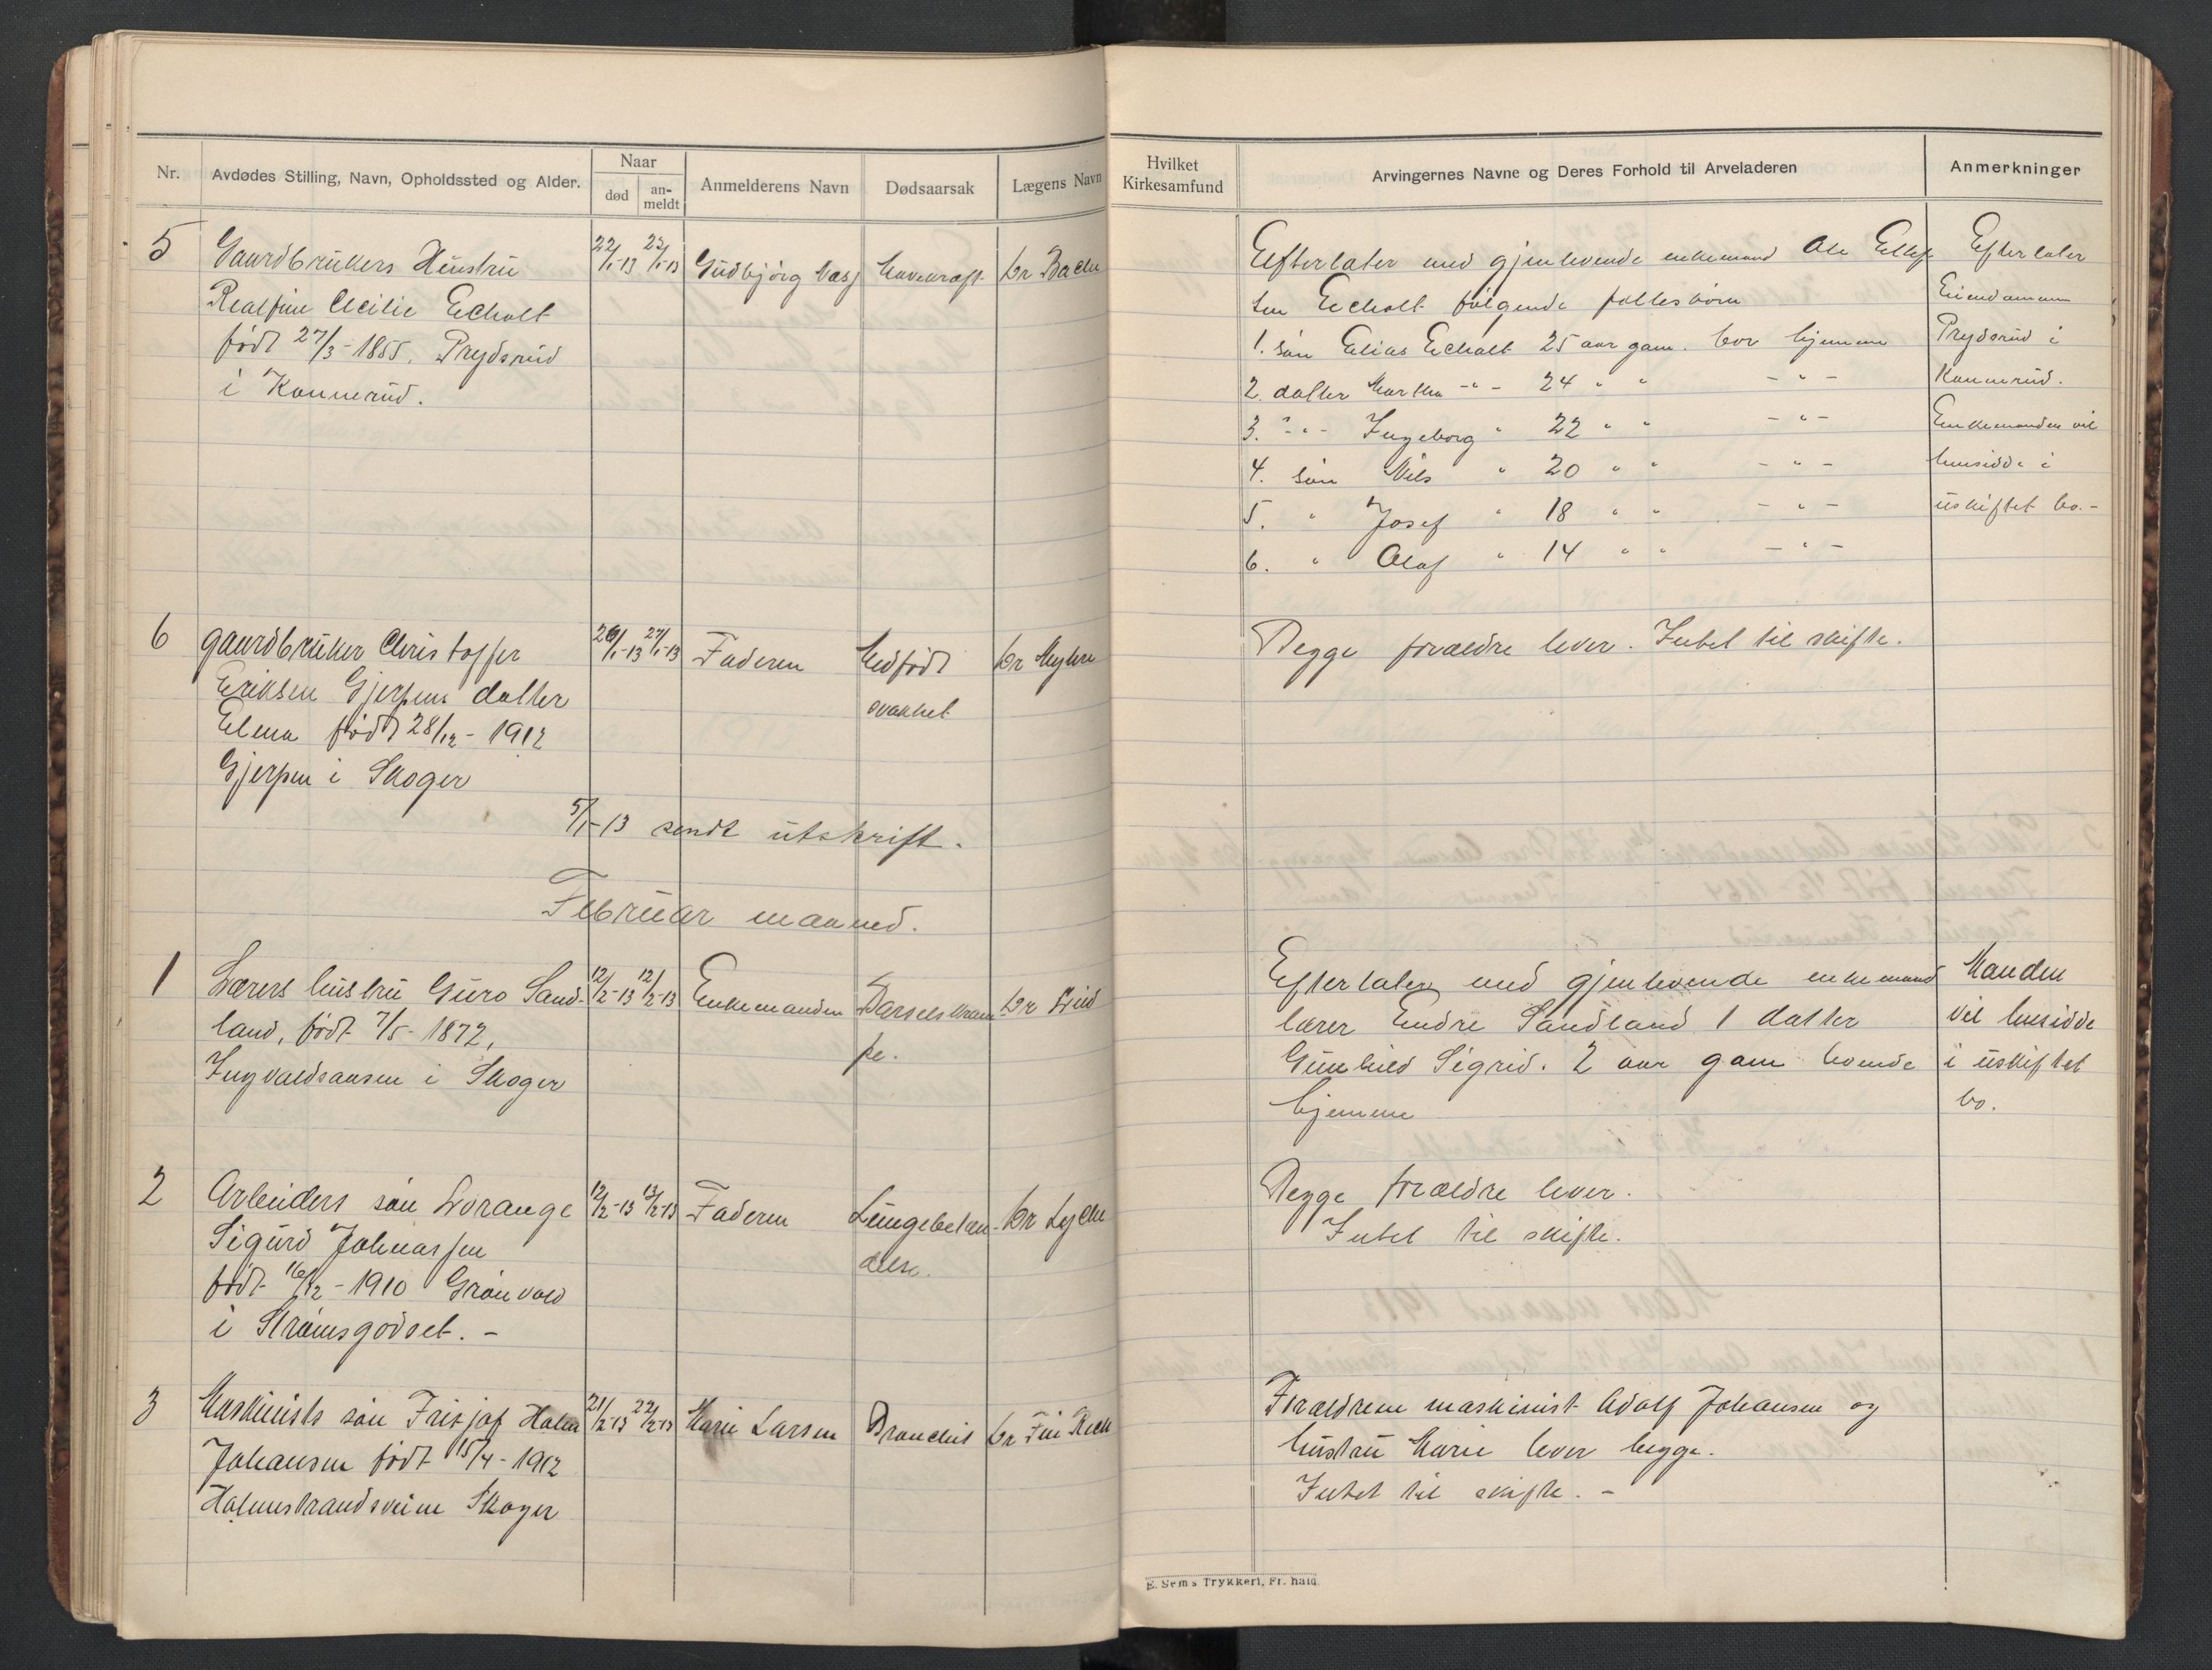 Nr. Avdødes Stilling, Navn, Opholdssted og Alder. Naar død an-meldt Anmelderens Navn Dødsaarsak Lægens Navn
5 Gaardbrukers Hustru 22/1-13 23/1-13 Gudbjørg Mavekræft Dr Bache
Cecilie Eckholt
født 27/3-1855. Prydsrud
i Konnerud.
6 gaardbruker Christoffer 26/1-13 27/1-13 Faderen Medfødt Dr Myhre
Eriksen Gjerpens datter svakhet
Elma født 28/12-1912
Gjerpen i Skoger
5/1-13 sendt utskrift.
Februar maaned.
1 Lærers hustru Guro Sand- 12/2-13 12/2-13 Enkemanden Barselskram- Dr
land, født 7/5-1872, pe.
i Skoger
2 Arbeiders søn Lorange 12/2-13 13/2-13 Faderen Lungebetæn- Dr Lyche
Sigurd Johnassen delse.
født 16/12-1910 Grønvold
i Strømsgodset. -
3 Maskinists søn Fritjof Holm 21/2-13 22/2-13 Marie Larsen Bronchit Dr
Johansen født 15/4-1912
Holmestrandsveien Skoger
Hvilket Kirkesamfund Arvingernes Navne og Deres Forhold til Arveladeren Anmerkninger
Efterlater med gjenlevende enkemand Ole Ellef Efterlater
sen Eckholt følgende fællesbørn Eiendommen
1. søn Elias Eckholt 25 aar gam. bor hjemme Prydsrud i
2. datter Martha -"- 24 " " -"- Konnerud.
3. -"- Ingeborg " 22 " " -"- Enkemanden vil
4. søn Nils " 20 " " -"- hensidde i
5. " Josef " 18 " " -"- uskiftet bo.-
6. " Olaf " 14 " " -"-
Begge forældre lever. Intet til skifte.
Efterlater med gjenlevende enkemand Manden
lærer Endre Sandland 1 datter vil hensidde
Gunhild Sigrid. 2 aar gam boende i uskiftet
hjemme bo.
Begge forældre lever.
Intet til skifte.
Forældrene maskinist Adolf Johansen og
hustru Marie lever begge.
Intet til skifte. -
E. Sem's Trykkeri, Fr.hald.